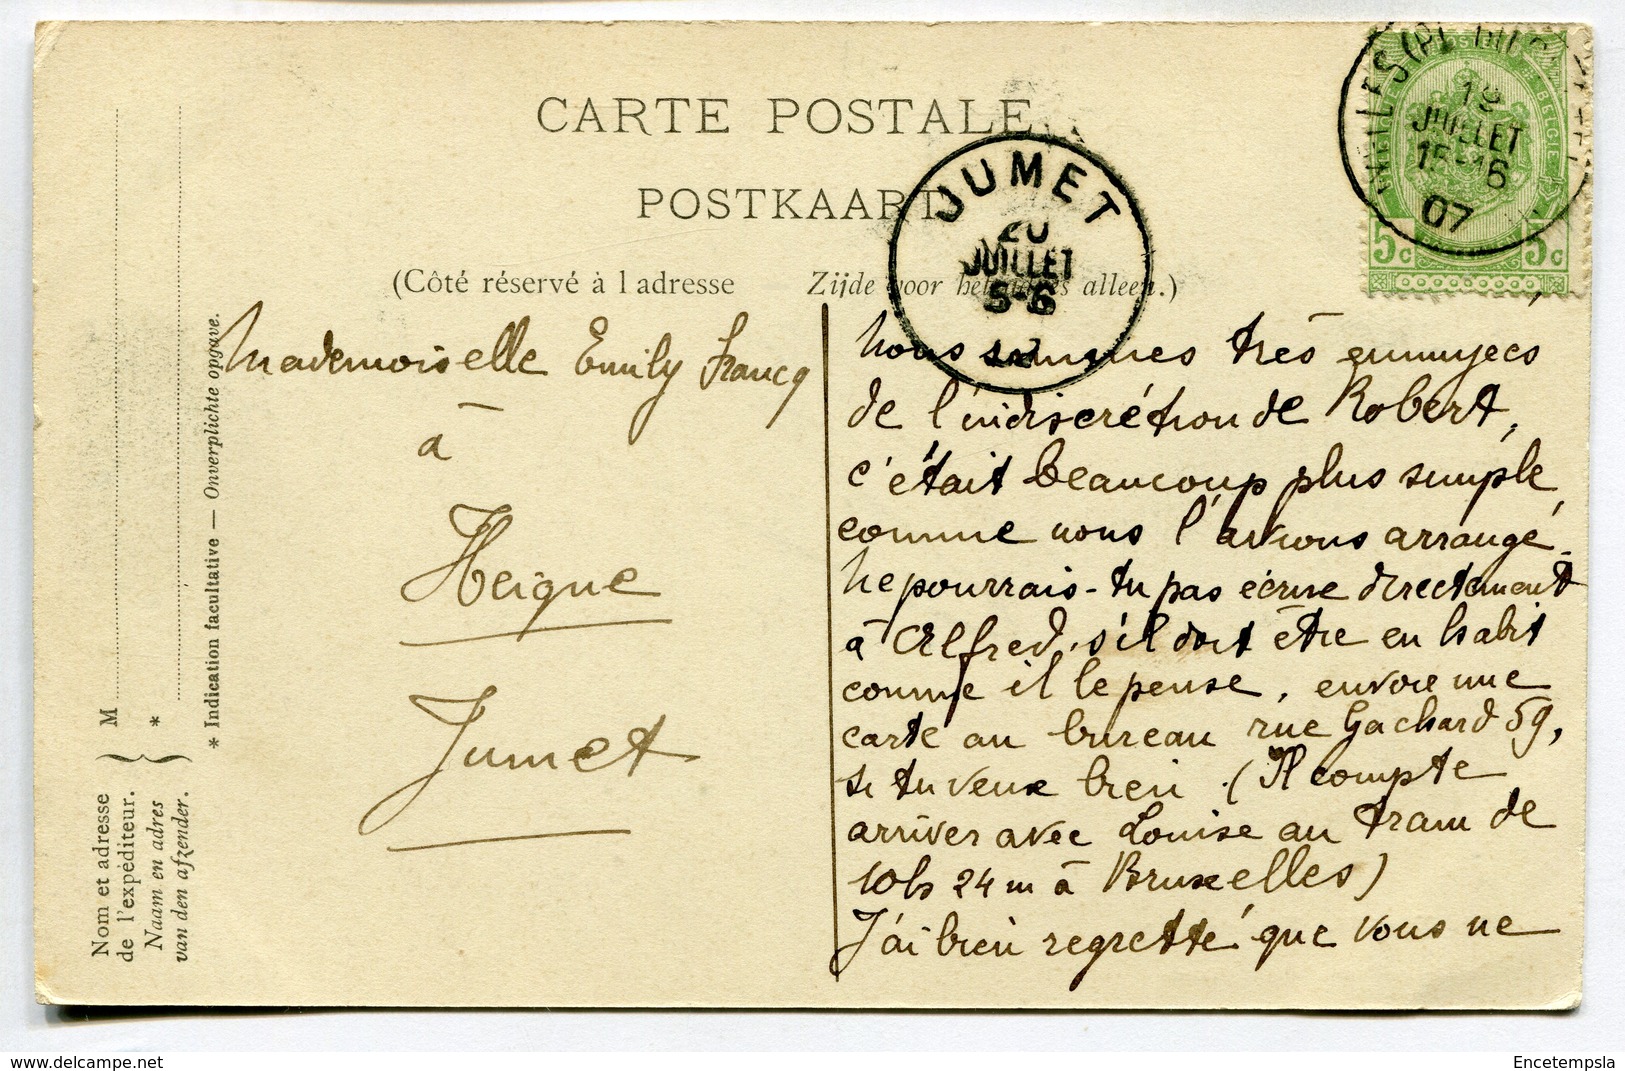 CARTE POSTALE
POSTKAART
(Côté réservé à l adresse Zijde voor het adres alleen.)
JUMET
20
JUILLET
5-6
IXELLES (PL. DU
19
JUILLET
15-16
07
5c 5c
Mademoiselle Emily Francq
à
Heigne
Jumet
Nous sommes très ennuyées
de l'indiscrétion de Robert,
c'était beaucoup plus simple,
comme nous l'avions arrangé.
Ne pourrais-tu pas écrire directement
à Alfred, s'il doit être en habit
comme il le pense, envoie une
carte au bureau rue Gachard 59,
si tu veux bien. (Il compte
arriver avec Louise au tram de
10hs 24m à Bruxelles)
J'ai bien regretté que vous ne
* Indication facultative — Onverplichte opgave.
M
*
Nom et adresse
de l'expéditeur.
Naam en adres
van den afzender.
www.delcampe.net
Encetempsla